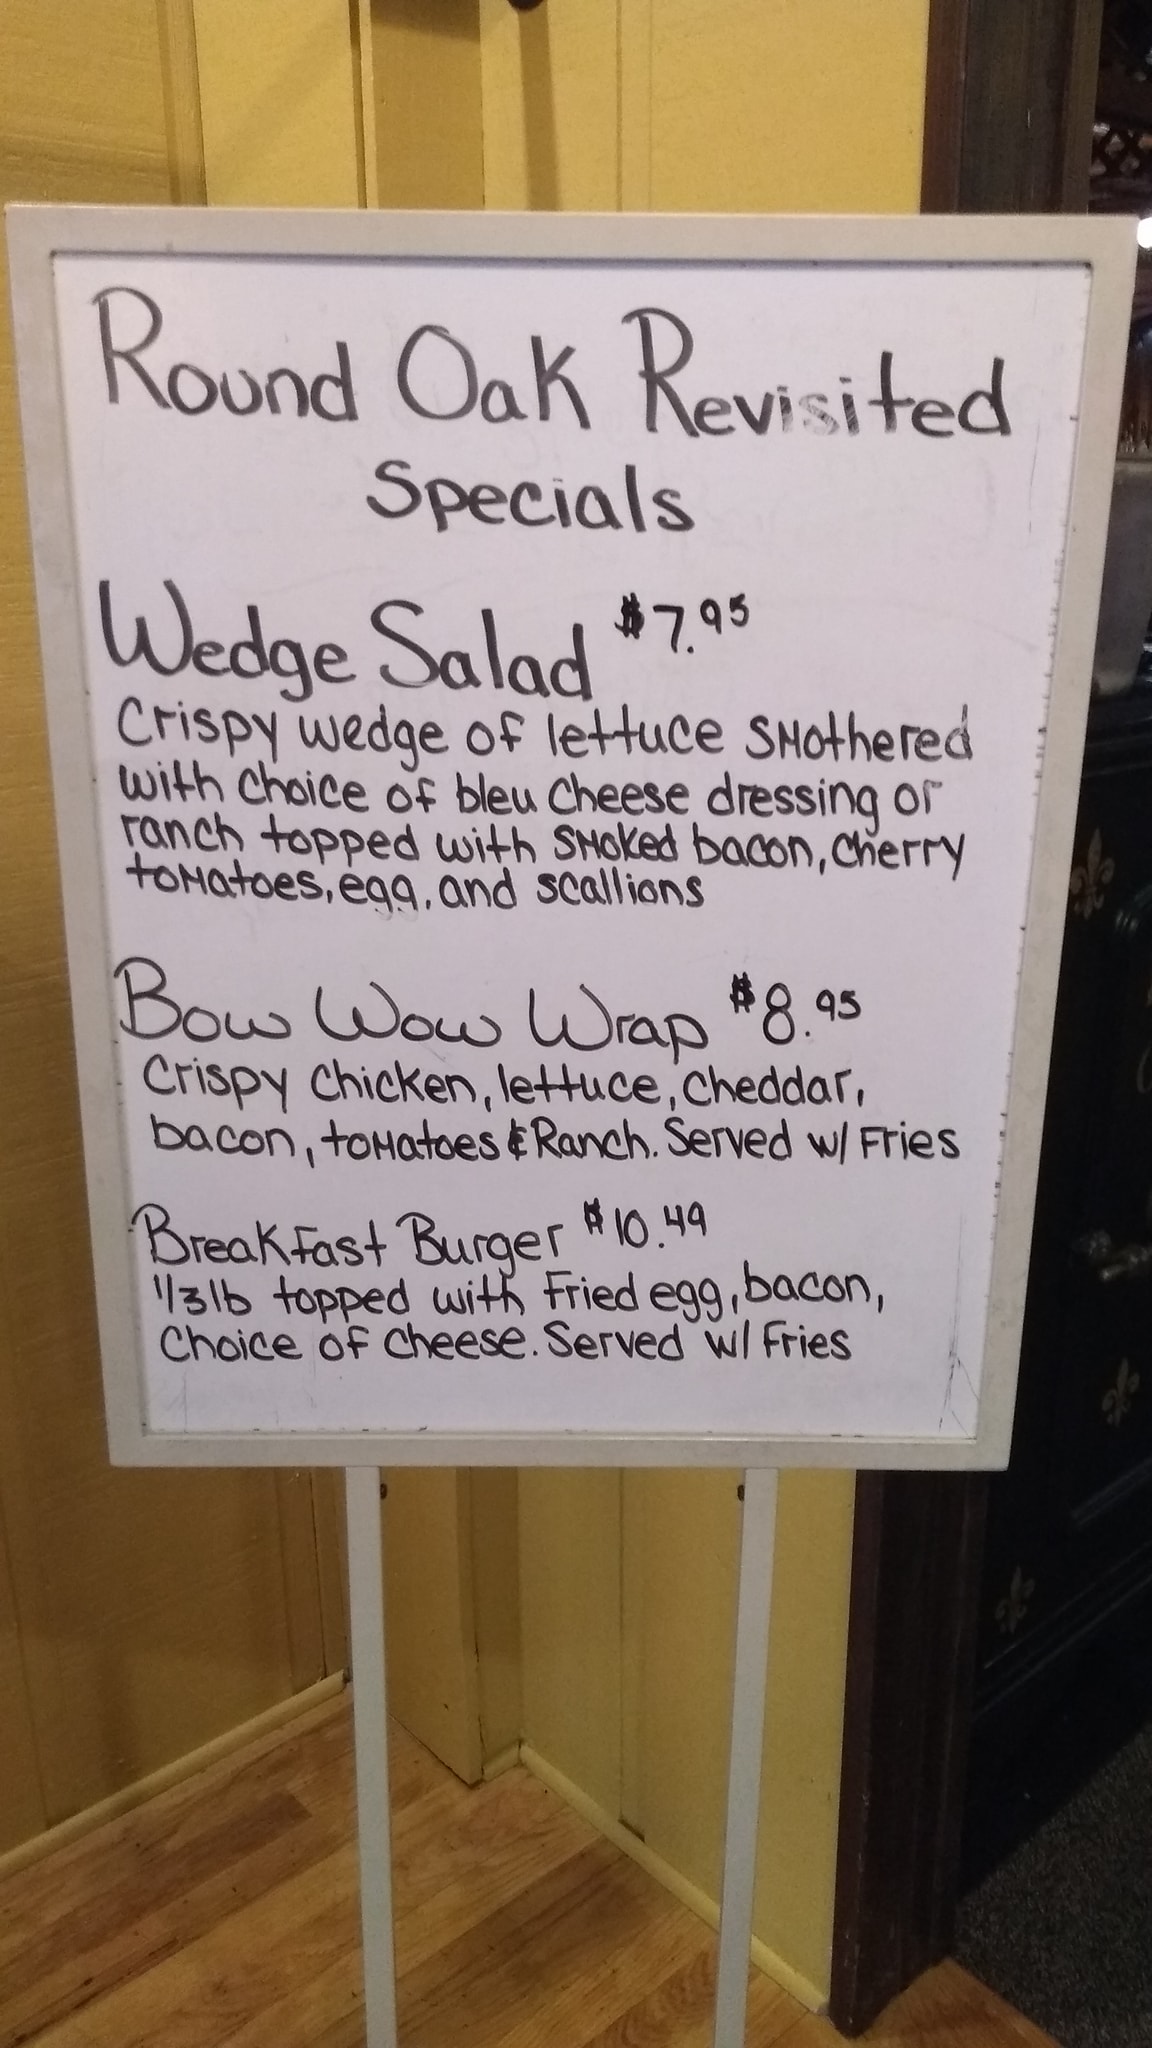 Round Oak Revisited
Specials
Wedge Salad $7.95
Crispy wedge of lettuce smothered
with choice of bleu cheese dressing or
ranch topped with smoked bacon, cherry
tomatoes, egg, and scallions
Bow Wow Wrap $8.95
Crispy chicken, lettuce, cheddar,
bacon, tomatoes & Ranch. Served w/ Fries
Breakfast Burger $10.49
1/3 lb topped with Fried egg, bacon,
Choice of cheese. Served w/ Fries